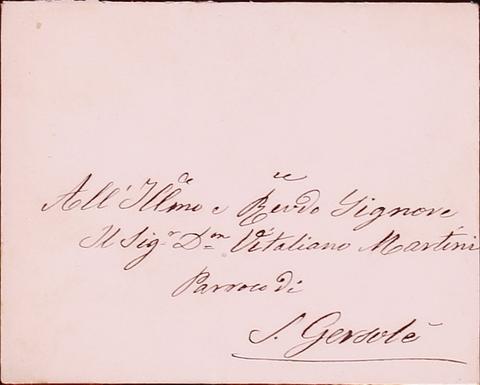 All'Illmo e Revdo Signore
Il Sigr Don Vitaliano Martini
Parroco di
S. Gersolè